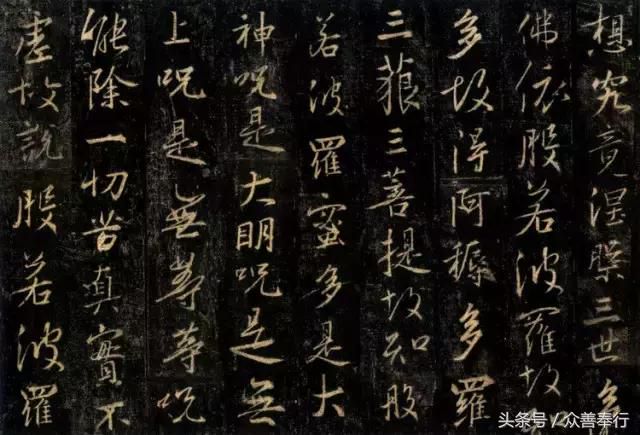 想究竟涅槃三世
佛依般若波羅故
多故得阿耨多羅
三藐三菩提故知般
若波羅蜜多是大
神咒是大明咒是無
上咒是無等等咒
能除一切苦真實不
虛故說般若波羅
头条号／众善奉行